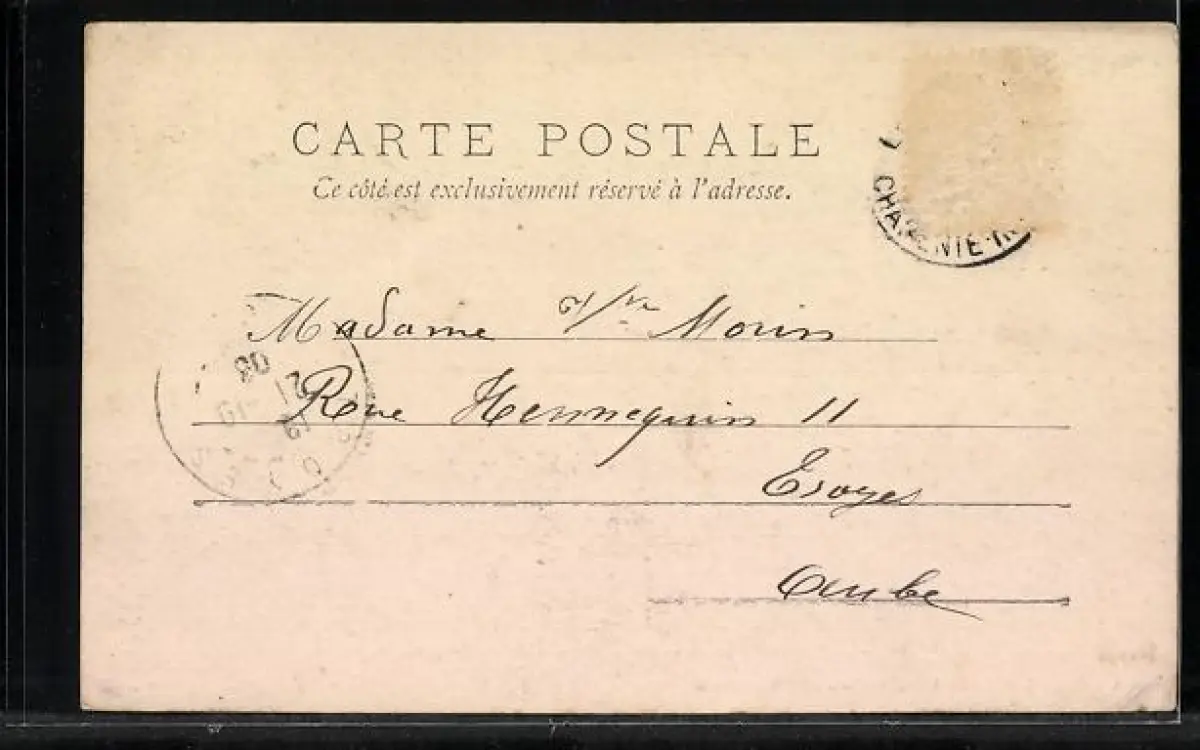 CARTE POSTALE
Ce côté est exclusivement réservé à l'adresse.
CHARENTE-IN
Madame Vve Morin
Rue Hennequin 11
Troyes
Aube
21 -10
03